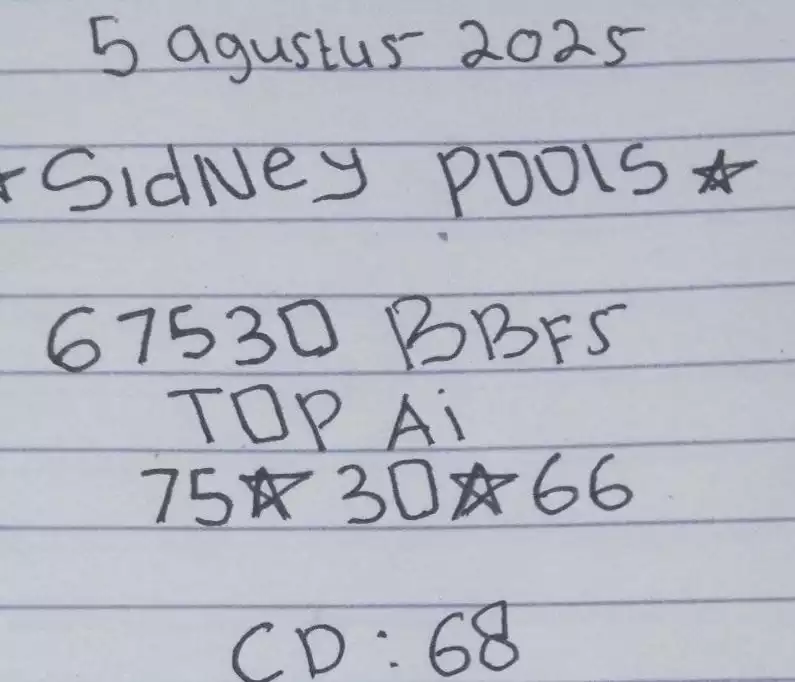 5 agustus 2025
★ SIdNey POOlS ★
67530 BBFS
TOP Ai
75★30★66
CD : 68